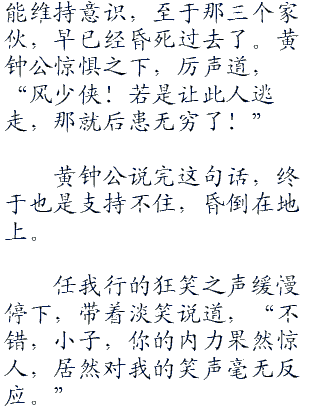 能维持意识，至于那三个家
伙，早已经昏死过去了。黄
钟公惊惧之下，厉声道，
“风少侠！若是让此人逃
走，那就后患无穷了！”
黄钟公说完这句话，终
于也是支持不住，昏倒在地
上。
任我行的狂笑之声缓慢
停下，带着淡笑说道，“不
错，小子，你的内力果然惊
人，居然对我的笑声毫无反
应。”